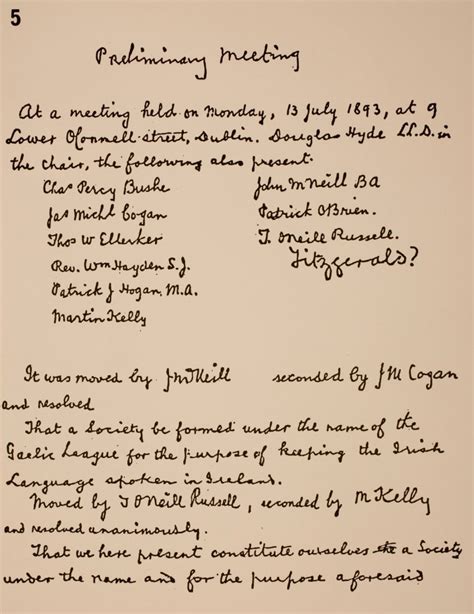 5
Preliminary Meeting
At a meeting held on Monday, 13 July 1893, at 9
Lower O'Connell street, Dublin. Douglas Hyde LL.D. in
the chair, the following also present.
Chas Percy Bushe
John McNeill BA
Jas Michl Cogan
Patrick O'Brien.
Thos W Ellerker
T. O'Neill Russell.
Rev. Wm Hayden S.J.
Fitzgerald?
Patrick J Hogan, M.A.
Martin Kelly
It was moved by J McNeill seconded by J M Cogan
and resolved
That a Society be formed under the name of the
Gaelic League for the purpose of keeping the Irish
Language spoken in Ireland.
Moved by T O'Neill Russell, seconded by M Kelly
and resolved unanimously.
That we here present constitute ourselves a Society
under the name and for the purpose aforesaid